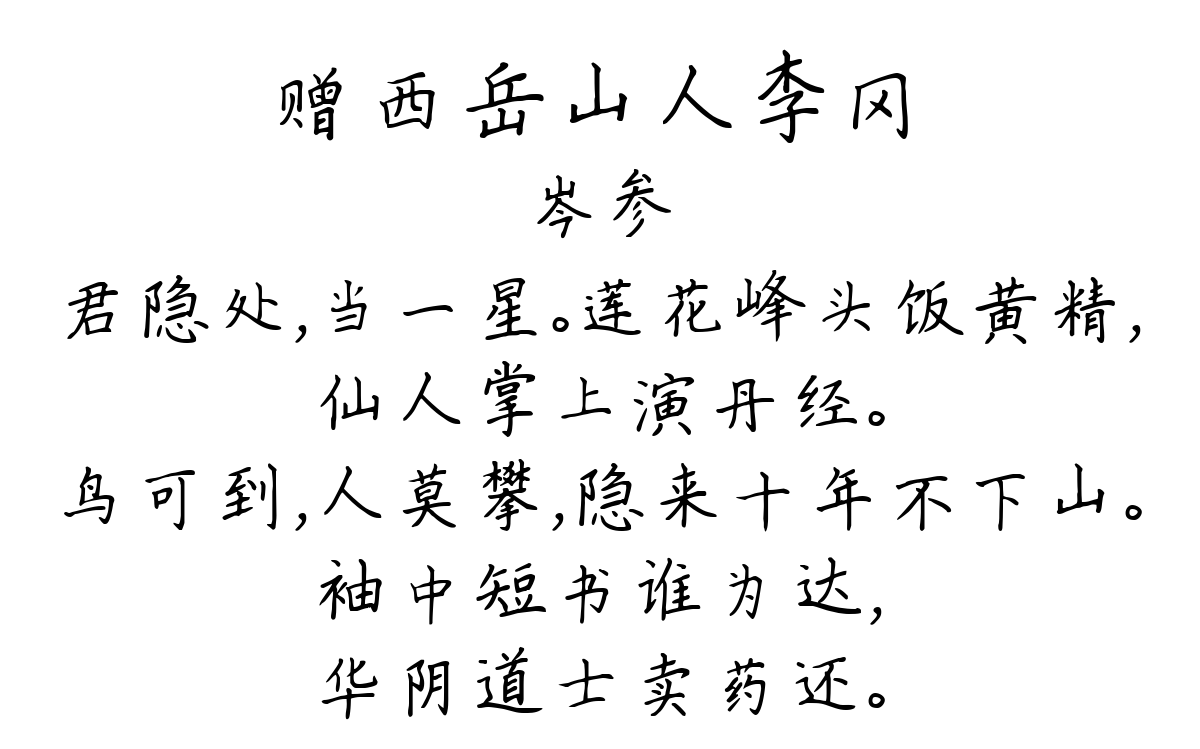 赠西岳山人李冈
岑参
君隐处,当一星。莲花峰头饭黄精,
仙人掌上演丹经。
鸟可到,人莫攀,隐来十年不下山。
袖中短书谁为达,
华阴道士卖药还。